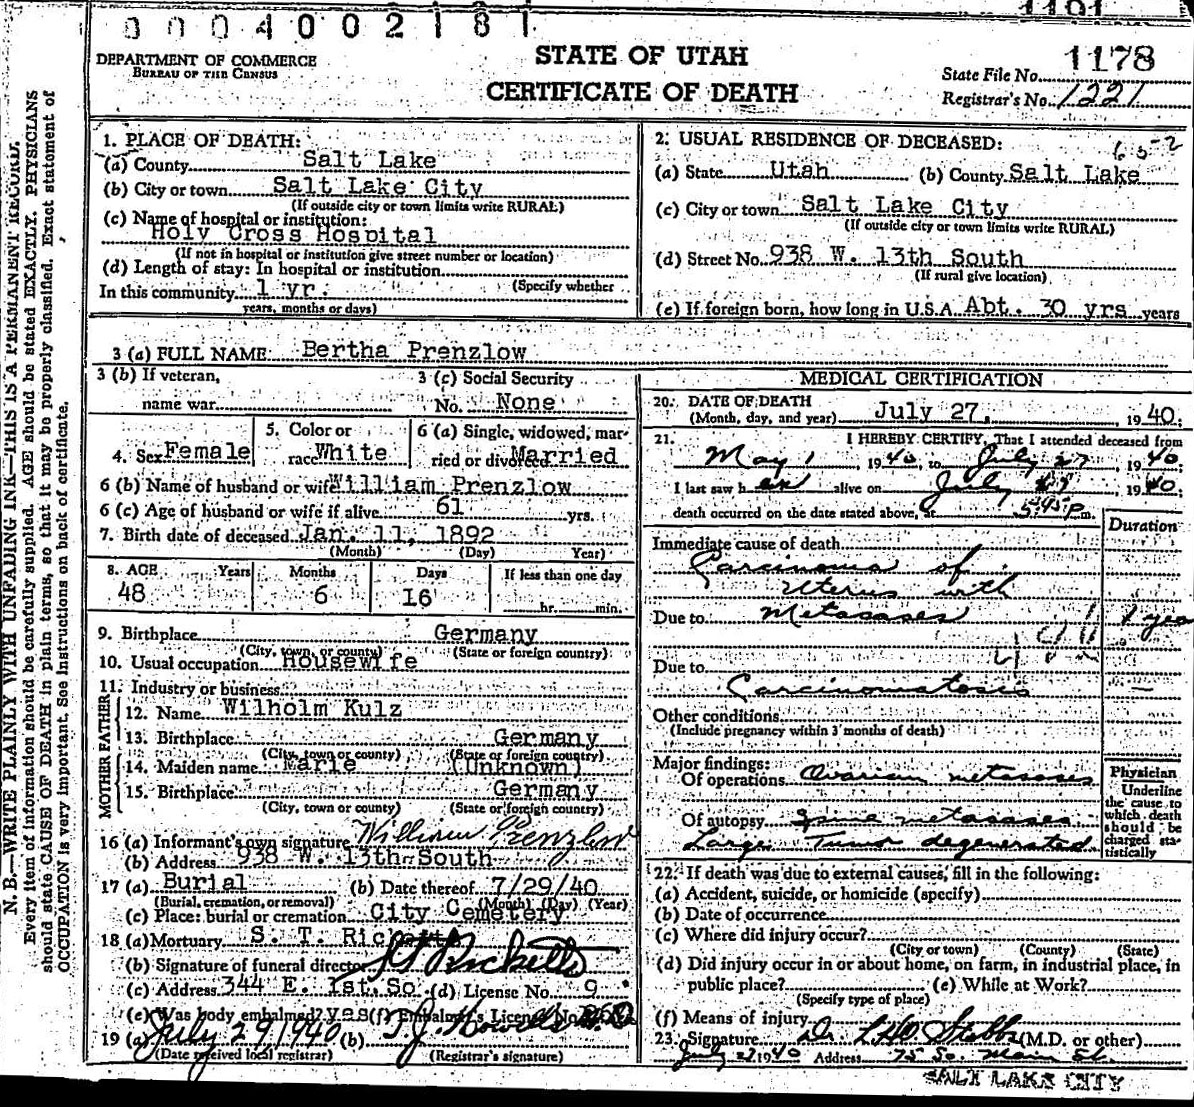 0004002181
1191
DEPARTMENT OF COMMERCE
BUREAU OF THE CENSUS
STATE OF UTAH
CERTIFICATE OF DEATH
State File No. 1178
Registrar's No. 1221
N. B.—WRITE PLAINLY WITH UNFADING INK—THIS IS A PERMANENT RECORD.
Every item of information should be carefully supplied. AGE should be stated EXACTLY. PHYSICIANS
should state CAUSE OF DEATH in plain terms, so that it may be properly classified. Exact statement of
OCCUPATION is very important. See instructions on back of certificate.
1. PLACE OF DEATH:
(a) County Salt Lake
(b) City or town Salt Lake City
(If outside city or town limits write RURAL)
(c) Name of hospital or institution:
Holy Cross Hospital
(If not in hospital or institution give street number or location)
(d) Length of stay: In hospital or institution
(Specify whether
In this community 1 yr.
years, months or days)
2. USUAL RESIDENCE OF DECEASED:
652
(a) State Utah (b) County Salt Lake
(c) City or town Salt Lake City
(If outside city or town limits write RURAL)
(d) Street No. 938 W. 13th South
(If rural give location)
(e) If foreign born, how long in U.S.A. Abt. 30 yrs years
3 (a) FULL NAME Bertha Prenzlow
3 (b) If veteran,
name war
3 (c) Social Security
No. None
4. Sex Female
5. Color or
race White
6 (a) Single, widowed, mar-
ried or divorced Married
6 (b) Name of husband or wife William Prenzlow
6 (c) Age of husband or wife if alive 61 yrs.
7. Birth date of deceased Jan. 11, 1892
(Month) (Day) (Year)
8. AGE Years Months Days If less than one day
48 6 16 hr. min.
9. Birthplace Germany
(City, town, or county) (State or foreign country)
10. Usual occupation Housewife
11. Industry or business
FATHER
12. Name Wilholm Kulz
13. Birthplace Germany
(City, town or county) (State or foreign country)
MOTHER
14. Maiden name Marie (Unknown)
15. Birthplace Germany
(City, town or county) (State or foreign country)
16 (a) Informant's own signature William Prenzlow
(b) Address 938 W. 13th South
17 (a) Burial (b) Date thereof 7/29/40
(Burial, cremation, or removal) (Month) (Day) (Year)
(c) Place: burial or cremation City Cemetery
18 (a) Mortuary S. T. Ricketts
(b) Signature of funeral director S T Ricketts
(c) Address 344 E. 1st. So (d) License No. 9
(e) Was body embalmed? yes (f) Embalmer's License No.
19 (a) July 29, 1940 (b)
(Date received local registrar) (Registrar's signature)
MEDICAL CERTIFICATION
20. DATE OF DEATH
(Month, day, and year) July 27, 1940
21. I HEREBY CERTIFY, That I attended deceased from
May 1, 1940, to July 27 1940;
I last saw her alive on July 27 1940;
death occurred on the date stated above, at 5:45 P. m.
Duration
Immediate cause of death
Carcinoma of
Uterus with
Due to Metasases 1 year
Due to
Carcinomatosis —
Other conditions
(Include pregnancy within 3 months of death)
Major findings:
Of operations Ovarian metasases
Of autopsy Spine metasases
Large Tumor degenerated
Physician
Underline
the cause to
which death
should be
charged sta-
tistically
22. If death was due to external causes, fill in the following:
(a) Accident, suicide, or homicide (specify)
(b) Date of occurrence
(c) Where did injury occur?
(City or town) (County) (State)
(d) Did injury occur in or about home, on farm, in industrial place, in
public place? (e) While at Work?
(Specify type of place)
(f) Means of injury
23. Signature Dr. (M.D. or other)
July 27 1940 Address 75 So. Main St.
SALT LAKE CITY